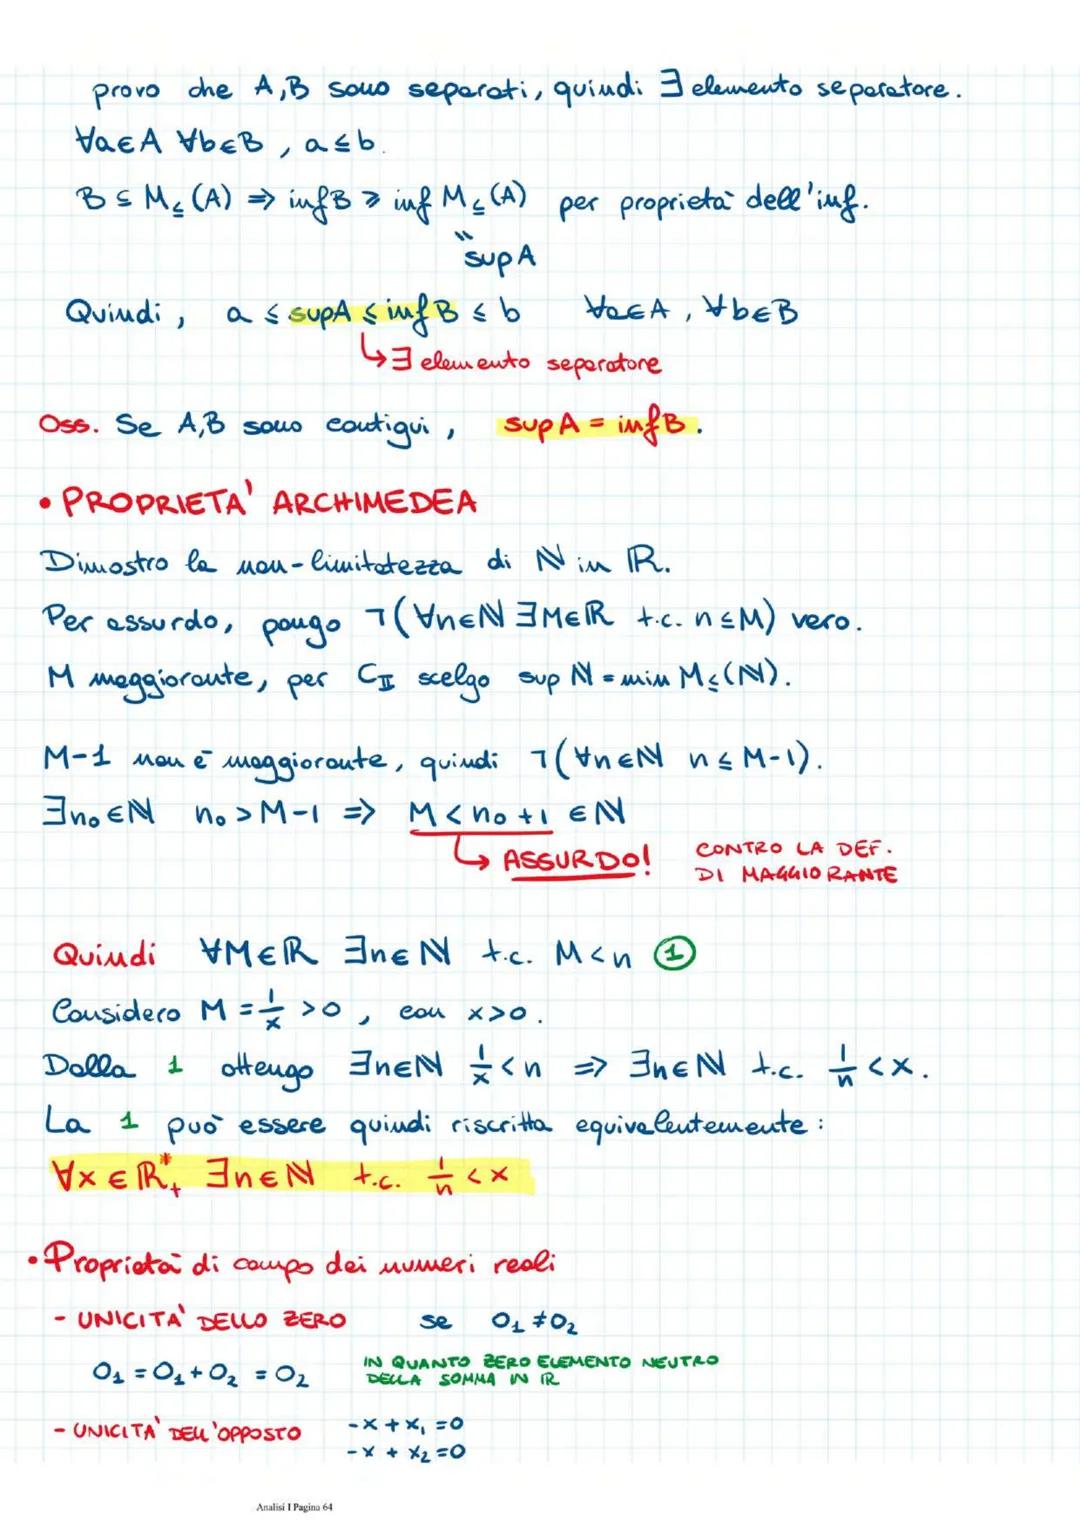 provo che A,B sono separati, quindi ∃ elemento separatore.
∀a∈A ∀b∈B , a≤b.
B ⊆ M≤(A) ⇒ infB ≥ inf M≤(A) per proprietà dell'inf.
"
supA
Quindi, a ≤ supA ≤ infB ≤ b ∀a∈A, ∀b∈B
↳∃ elemento separatore
Oss. Se A,B sono contigui, supA = infB.
• PROPRIETA' ARCHIMEDEA
Dimostro la non-limitatezza di ℕ in ℝ.
Per assurdo, pongo ¬(∀n∈ℕ ∃M∈ℝ t.c. n≤M) vero.
M maggiorante, per C_II scelgo sup ℕ = min M≤(ℕ).
M-1 non è maggiorante, quindi ¬(∀n∈ℕ n≤M-1).
∃n₀∈ℕ n₀>M-1 ⇒ M<n₀+1 ∈ℕ
↳ ASSURDO! CONTRO LA DEF.
DI MAGGIORANTE
Quindi ∀M∈ℝ ∃n∈ℕ t.c. M<n ①
Considero M = 1/x >0, con x>0.
Dalla 1 ottengo ∃n∈ℕ 1/x<n ⇒ ∃n∈ℕ t.c. 1/n<x.
La 1 può essere quindi riscritta equivalentemente:
∀x∈ℝ*₊ ∃n∈ℕ t.c. 1/n<x
• Proprietà di campo dei numeri reali
- UNICITA' DELLO ZERO se 0₁≠0₂
0₁=0₁+0₂=0₂ IN QUANTO ZERO ELEMENTO NEUTRO
DELLA SOMMA IN ℝ
- UNICITA' DELL'OPPOSTO -x+x₁=0
-x+x₂=0
Analisi I Pagina 64